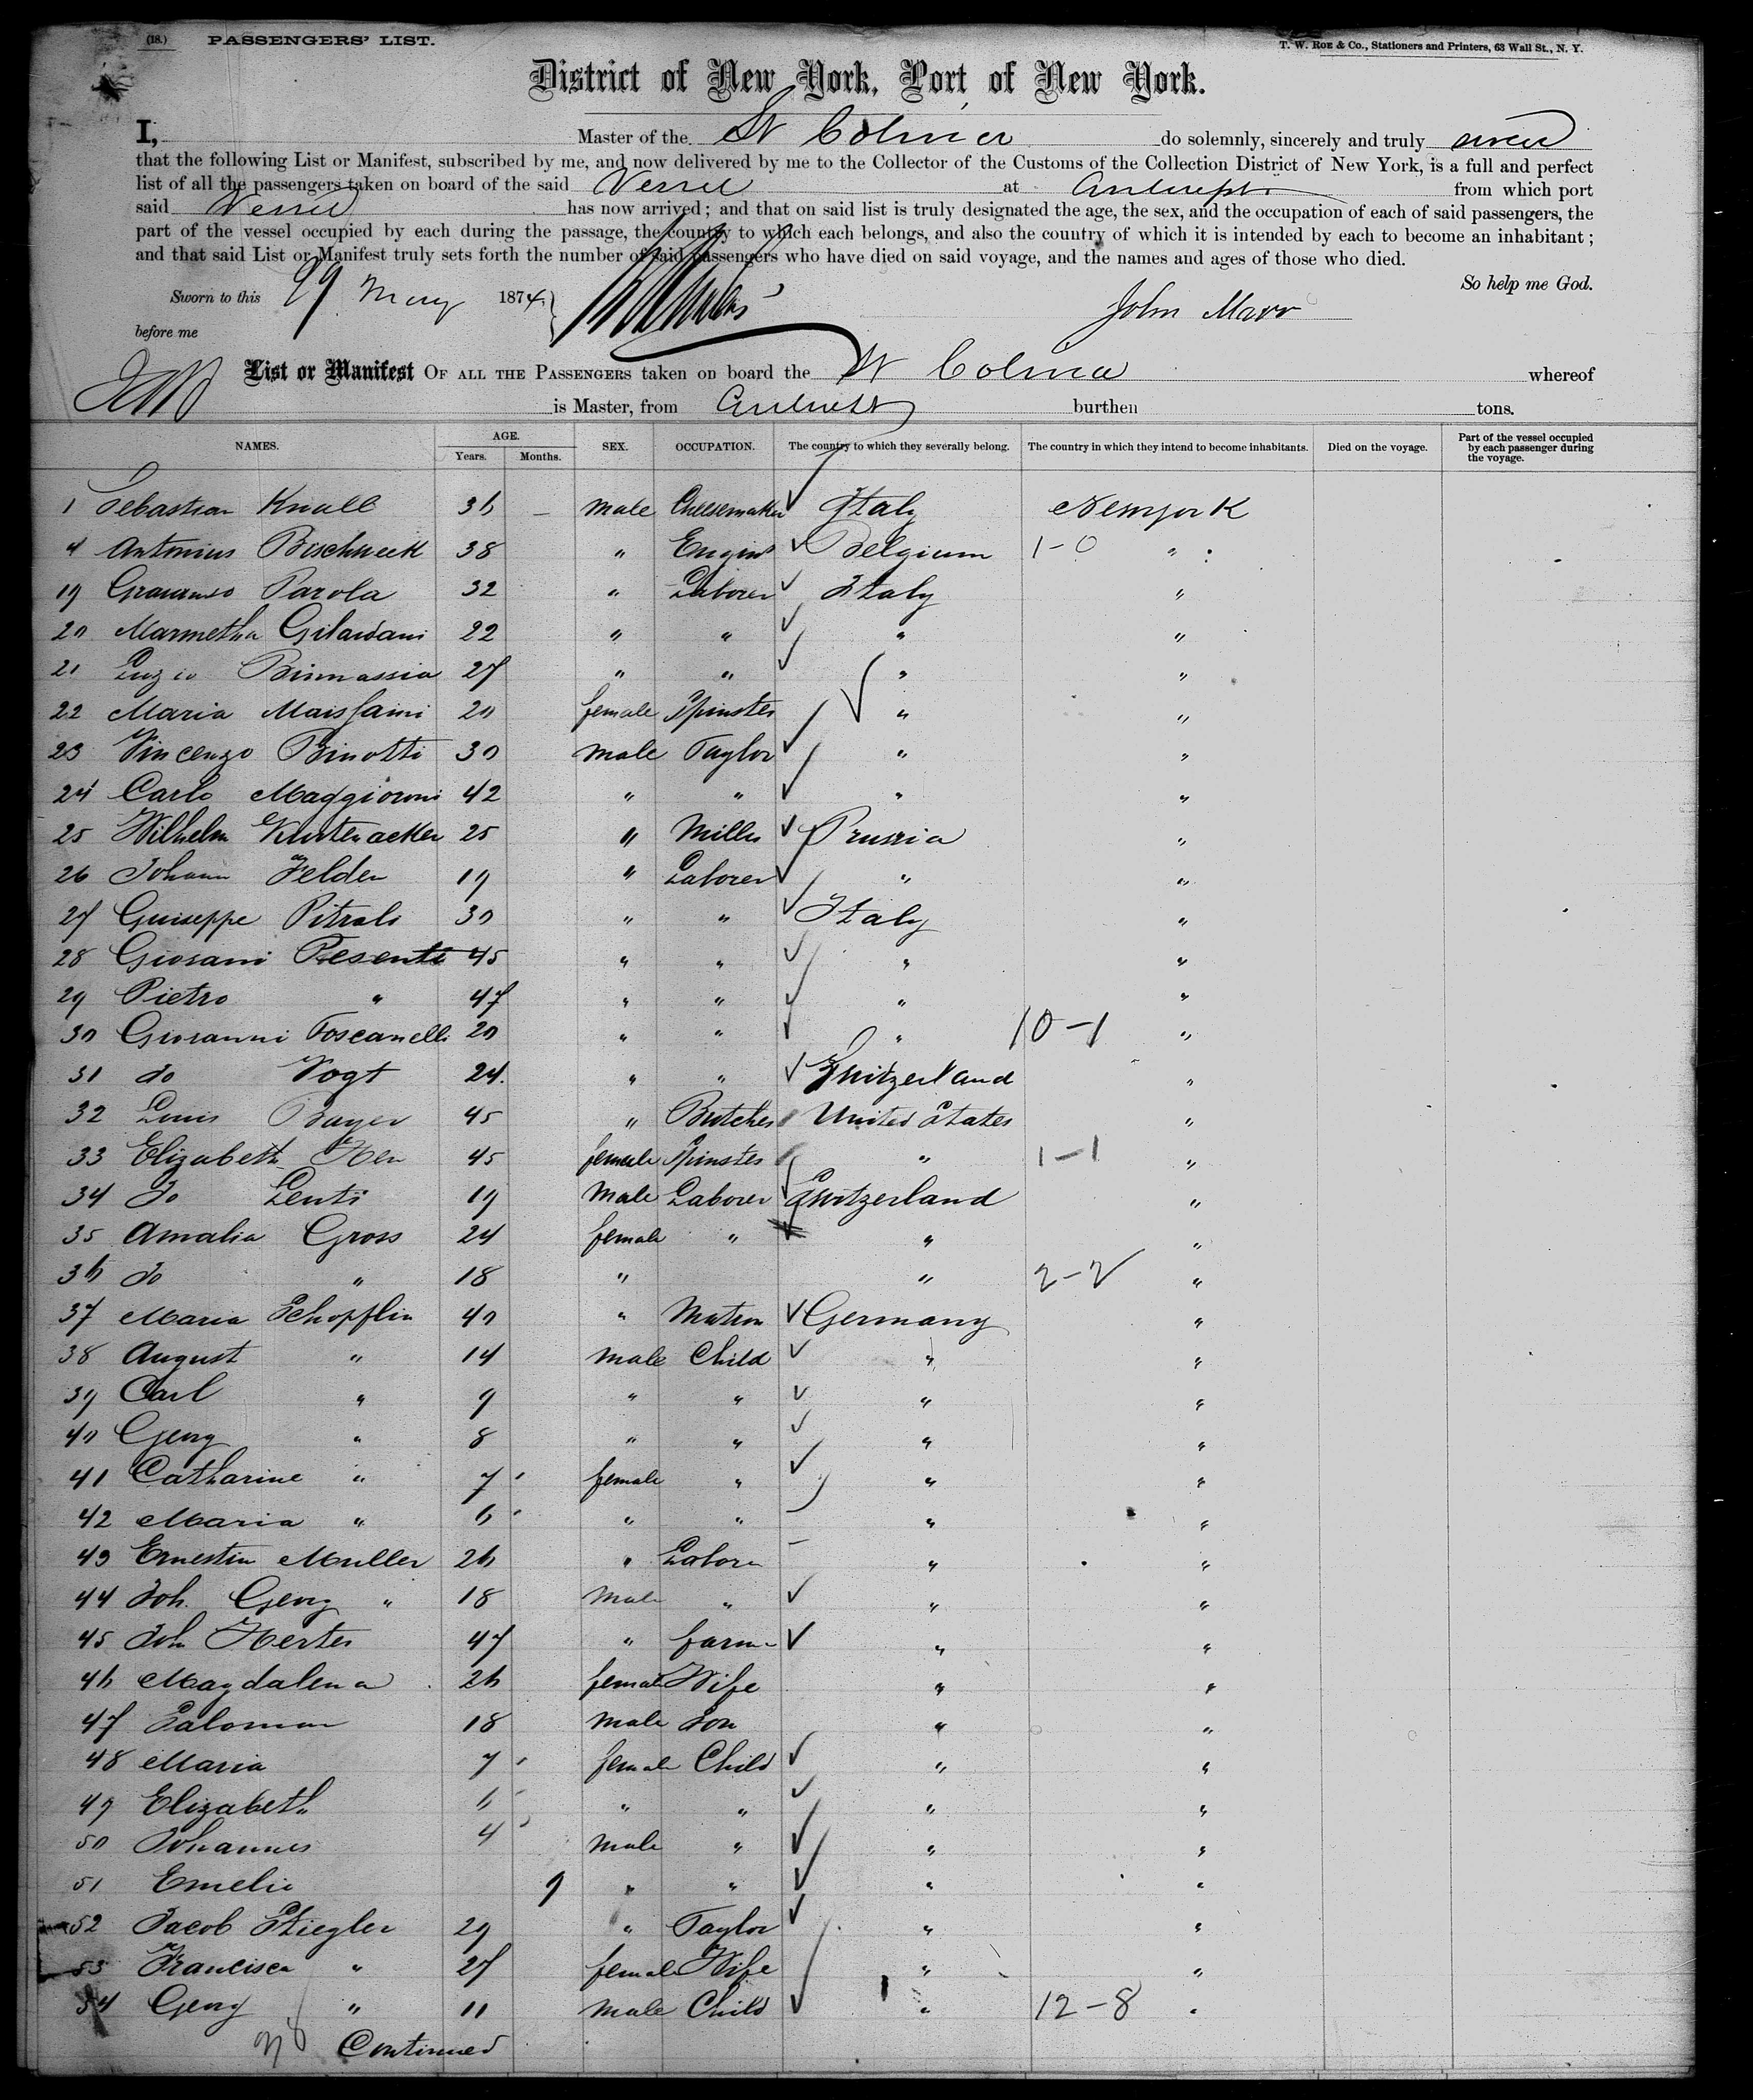 (18.) PASSENGERS' LIST. T. W. ROE & Co., Stationers and Printers, 63 Wall St., N. Y.
District of New York, Port of New York.
I, Master of the St Colmia do solemnly, sincerely and truly swear
that the following List or Manifest, subscribed by me, and now delivered by me to the Collector of the Customs of the Collection District of New York, is a full and perfect
list of all the passengers taken on board of the said Vessel at Antwerp from which port
said Vessel has now arrived; and that on said list is truly designated the age, the sex, and the occupation of each of said passengers, the
part of the vessel occupied by each during the passage, the country to which each belongs, and also the country of which it is intended by each to become an inhabitant;
and that said List or Manifest truly sets forth the number of said passengers who have died on said voyage, and the names and ages of those who died.
So help me God.
Sworn to this 29 May 1874
John Marr
before me
List or Manifest OF ALL THE PASSENGERS taken on board the St Colmia whereof
is Master, from Antwerp burthen tons.
NAMES. AGE. Years. Months. SEX. OCCUPATION. The country to which they severally belong. The country in which they intend to become inhabitants. Died on the voyage. Part of the vessel occupied by each passenger during the voyage.
1 Sebastian Knull 36 – male Cheesemaker Italy New york
4 Antonius Bischweek 38 " Engin Belgium 1-0 "
19 Parola 32 " Laborer Italy "
20 Marmetha Gilardani 22 " " " "
21 Luzio Binmassia 27 " " " "
22 Maria Maisfaini 20 female Spinster " "
23 Vincenzo Binotti 30 male Taylor " "
24 Carlo Maggioroni 42 " " " "
25 Wilhelm Kustenacker 25 " Miller Prussia "
26 Johann Felden 19 " Laborer " "
27 Guiseppe Pitrali 30 " " Italy "
28 Giovani Pesenti 45 " " " "
29 Pietro " 47 " " " "
30 Giovanni Toscanelli 20 " " " 10-1 "
31 do Vogt 24. " " Switzerland "
32 Louis Bayer 45 " Butcher United States "
33 Elizabeth Hen 45 female Spinster " 1-1 "
34 Jo Lenti 19 Male Laborer Switzerland "
35 Amalia Gross 24 female " " "
36 do " 18 " " 2-2 "
37 Maria Schopflin 40 " Matron Germany "
38 August " 14 male Child " "
39 Carl " 9 " " " "
40 Georg " 8 " " " "
41 Catharine " 7 female " " "
42 Maria " 6 " " " "
43 Ernestin Muller 26 " Labore " "
44 Joh. Georg " 18 Male " " "
45 Joh Herter 47 " farm " "
46 Magdalena 26 female Wife " "
47 Saloman 18 Male Son " "
48 Maria 7 female Child " "
49 Elizabeth 6 " " " "
50 Johannes 4 Male " " "
51 Emelie 9 " " " "
52 Jacob Stiegler 29 " Taylor " "
53 Francisca " 27 female Wife " "
54 Georg " 11 Male Child " 12-8 "
Continued